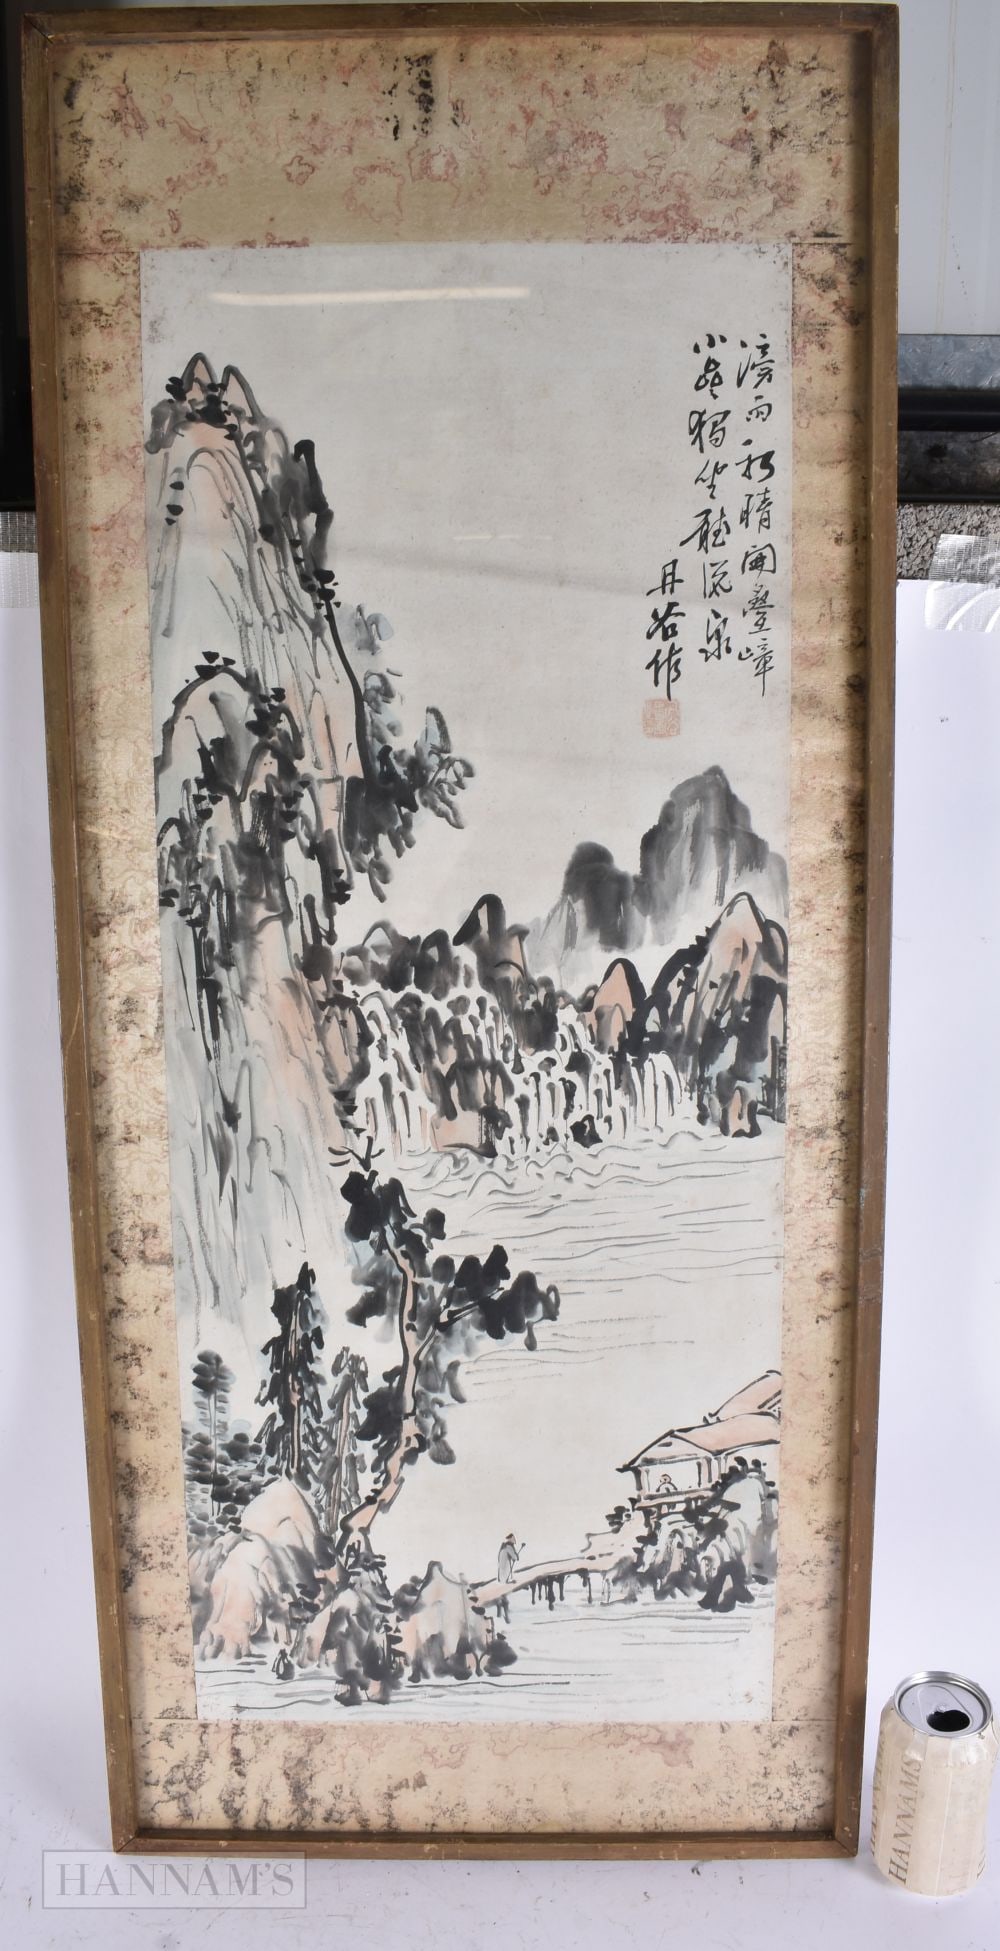 雨初晴開疊嶂
小 獨坐聽流泉
丹谷作
HANNAM'S
HANNAMS